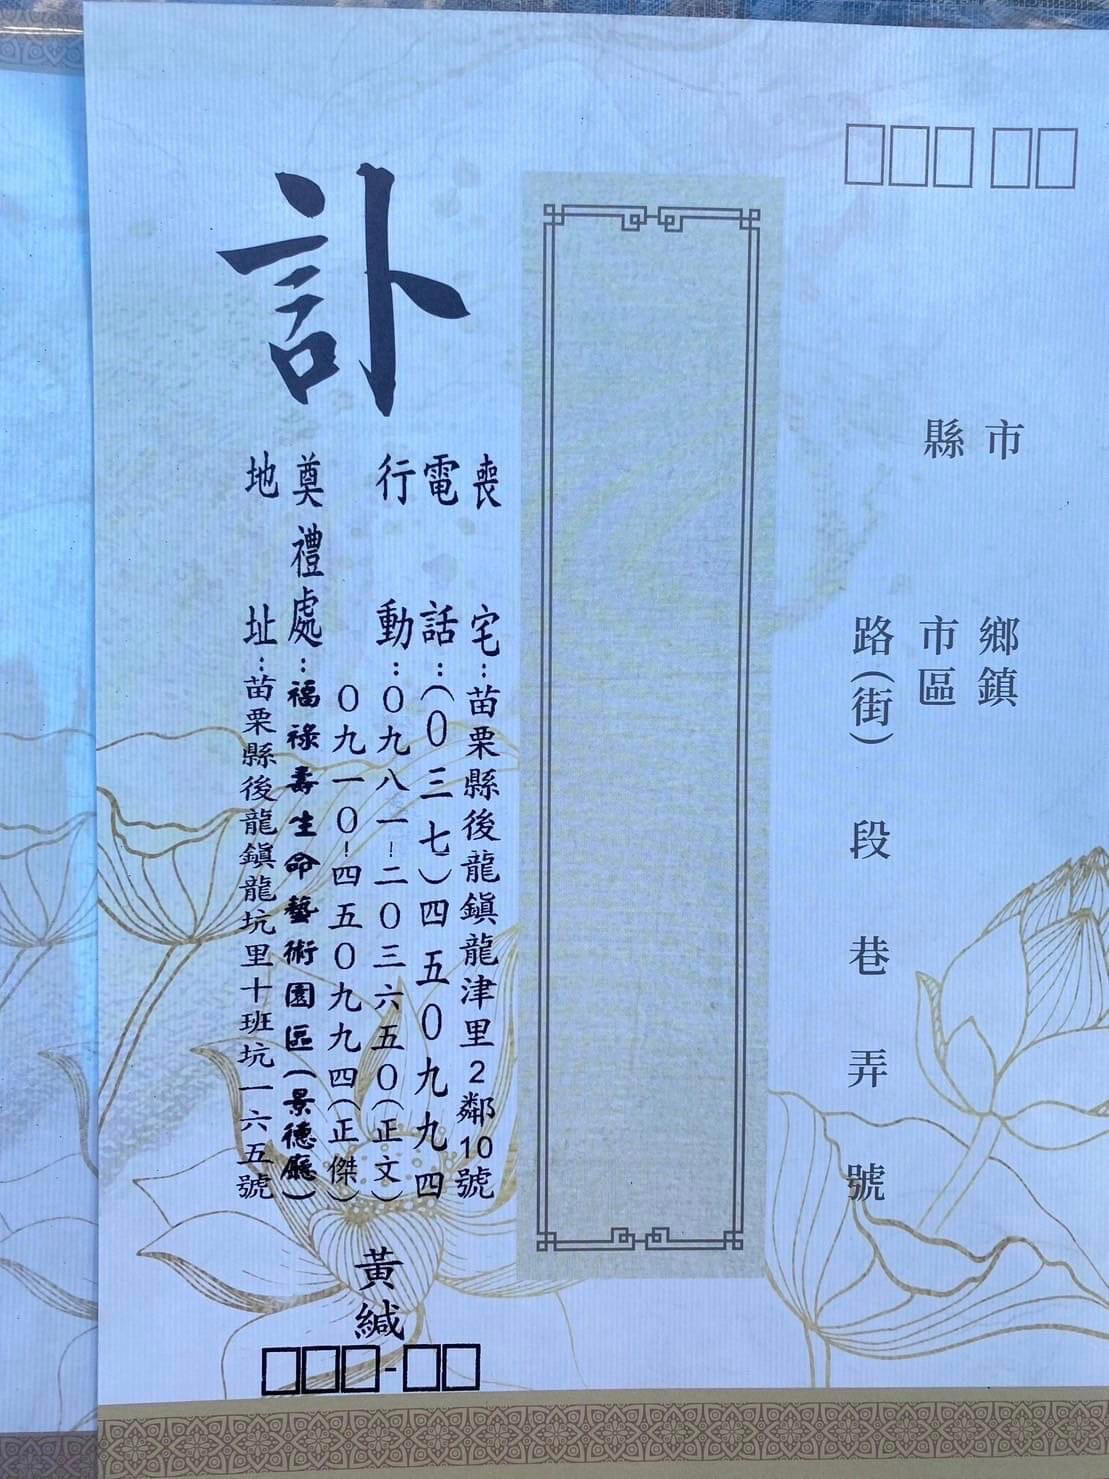 縣 市
鄉鎮
市區
路(街) 段 巷 弄 號
訃
喪宅：苗栗縣後龍鎮龍津里2鄰10號
電話：(〇三七)四五〇九九四
行動：〇九八一-二〇三六五〇(正文)
〇九一〇-四五〇九九四(正傑)
奠禮處：福祿壽生命藝術園區(景德廳)
地址：苗栗縣後龍鎮龍坑里十班坑一六五號
黃緘